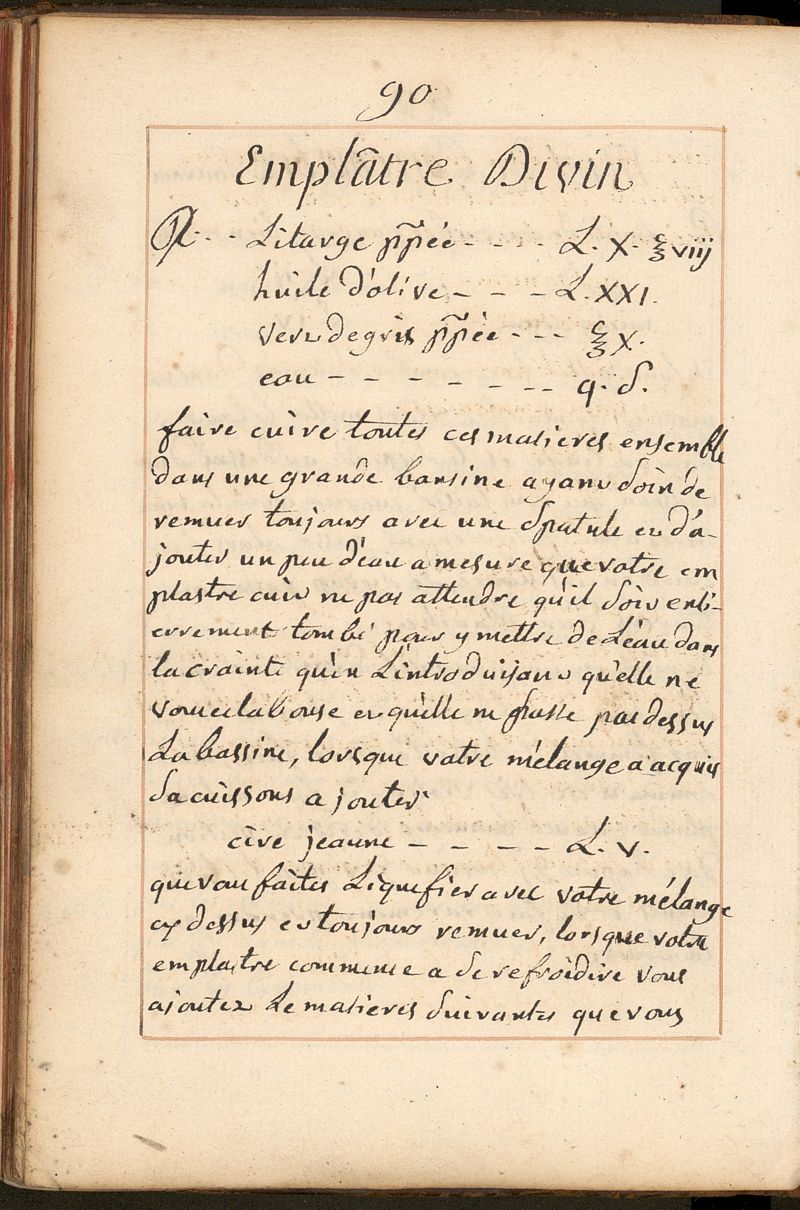 90
Emplâtre Divin
℞ - - Litarge pp̃ée - - - - L. X. ℥ viij
huile d'olive - - - L. XXI.
vert degris pp̃ée - - - ℥ X.
eau - - - - - - q. S.
faire cuire toutes ces matieres ensemble
dans une grande bansine ayant soin de
remuer toujours avec une spatule et d'a-
jouter un peu d'eau a mesure que votre em
plastre cuit ne pas attendre qu'il soit enti-
errement tombé pour y mettre de L'eau dans
la crainte qu'en L'introduisant qu'elle ne
et qu'elle ne passe par dessus
La bassine, lorsque votre mélange a acquis
sa cuissons ajouter
cire jeaune - - - - L. V.
que vou faites Liquefier avec votre mélange
cy dessus et toujours remuer, lorsque votre
emplastre commence a se refroidire vous
ajoutez Le matieres suivantes que vous